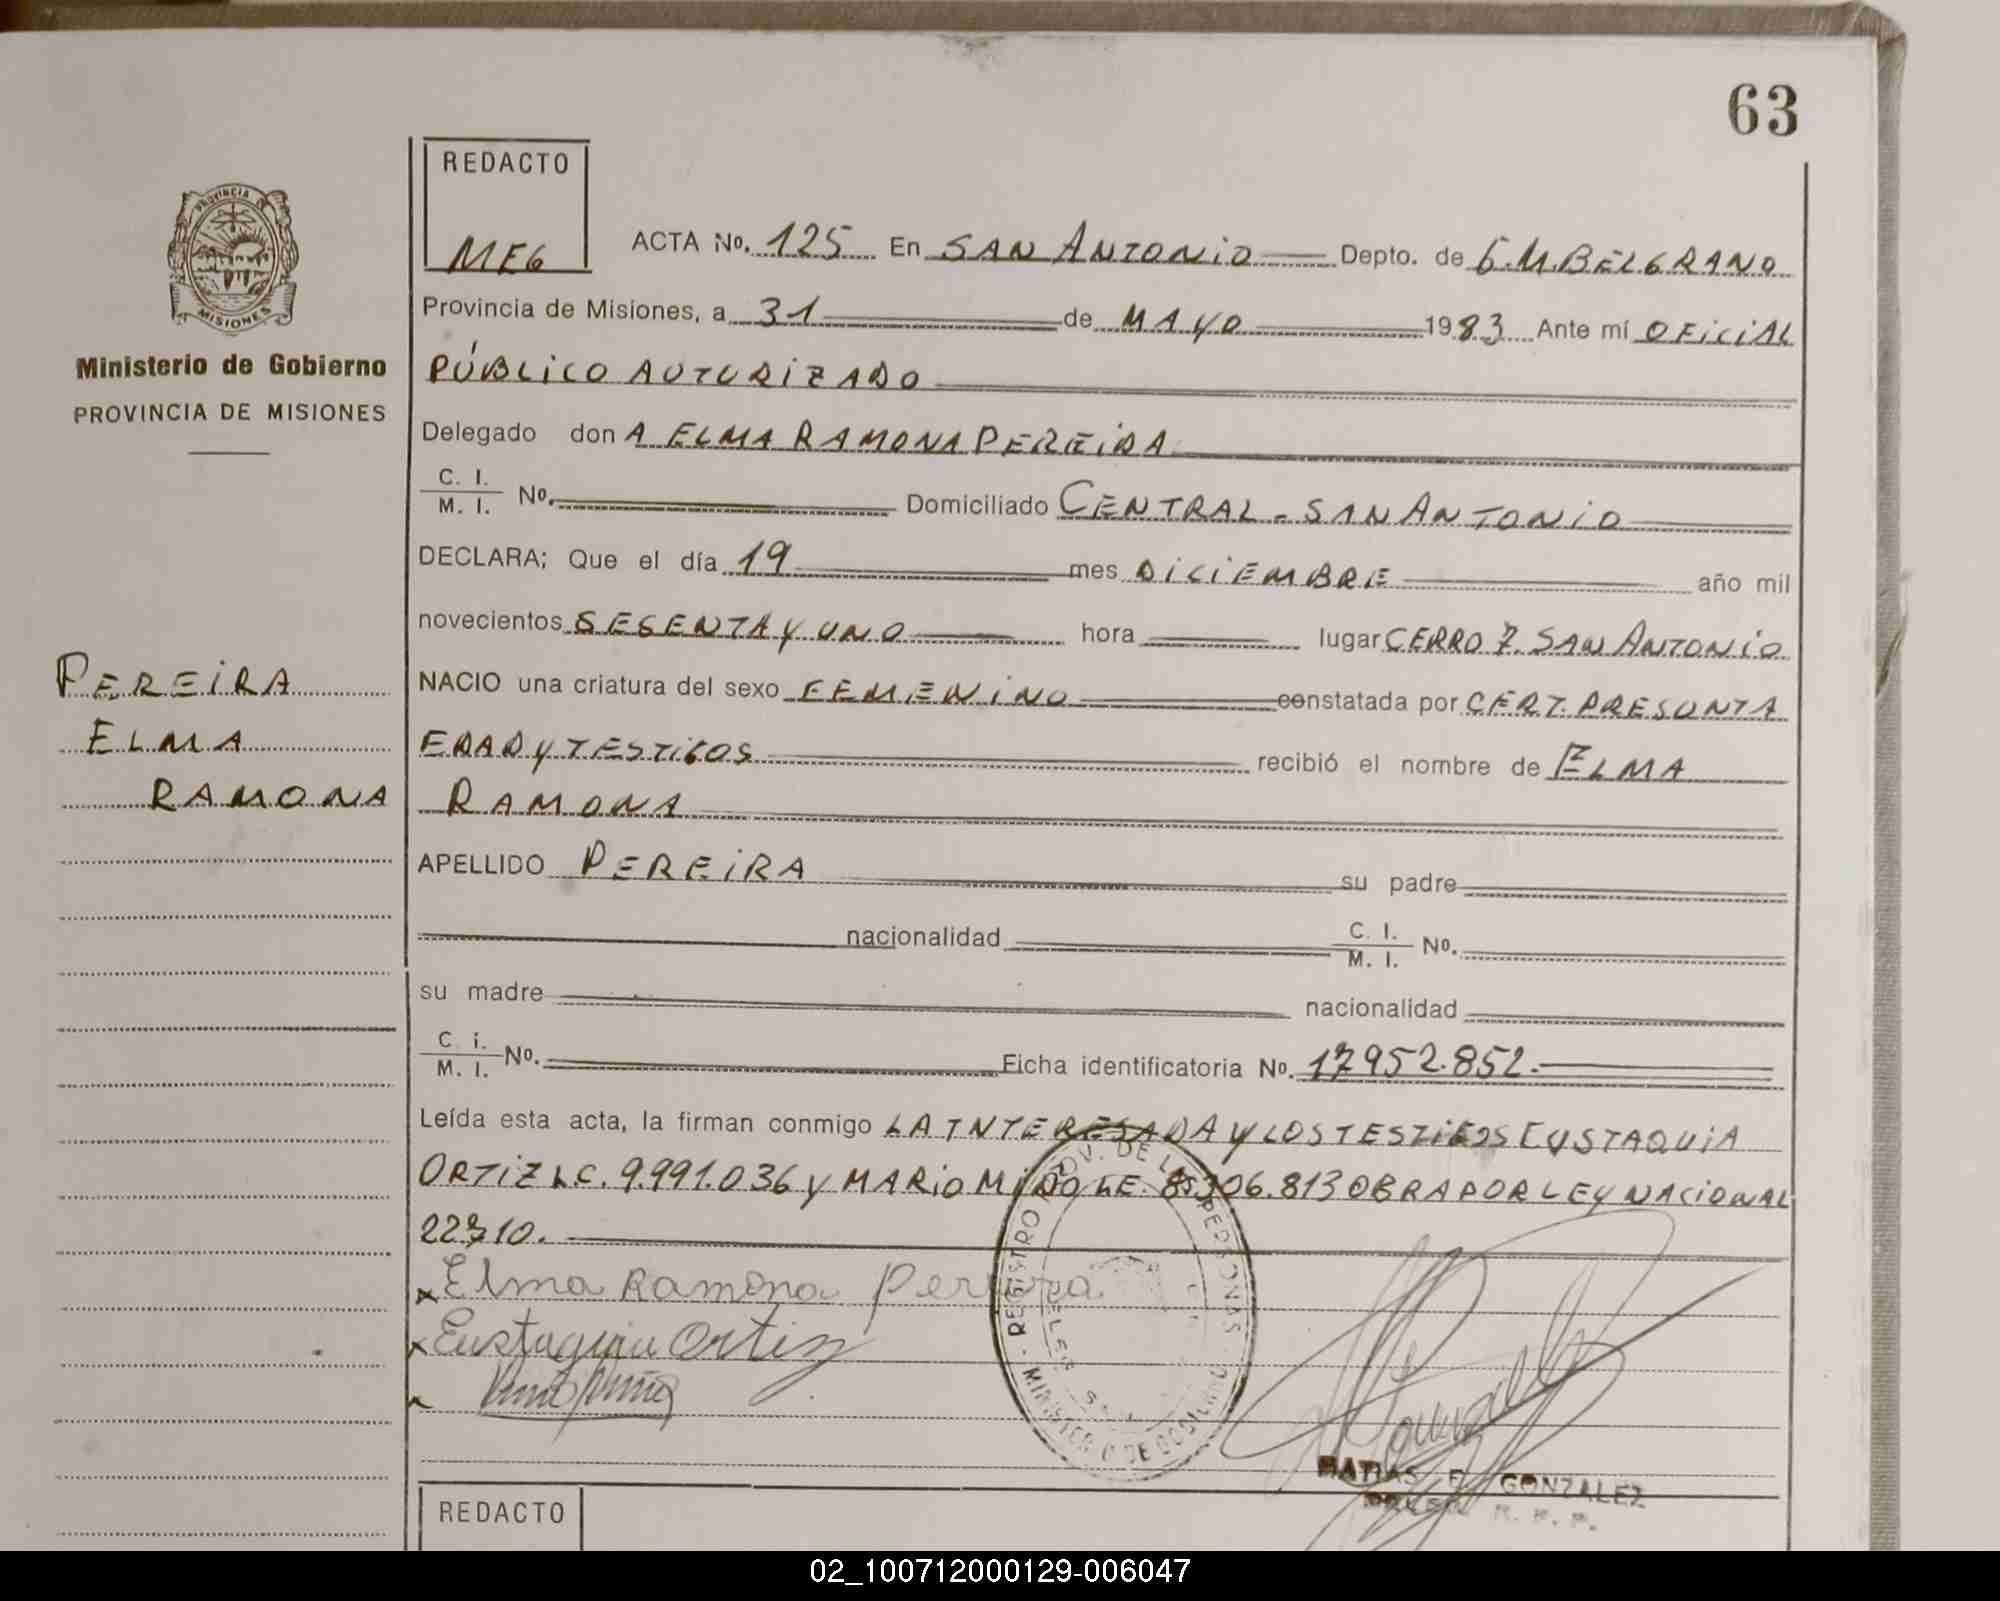 63
REDACTO
MEG
ACTA No. 125 En SAN ANTONIO Depto. de G.M.BELGRANO
Provincia de Misiones, a 31 de MAYO 1983 Ante mí OFICIAL
PÚBLICO AUTORIZADO
Delegado don A ELMA RAMONA PEREIRA
C. I.
M. I. No. Domiciliado CENTRAL - SAN ANTONIO
DECLARA; Que el día 19 mes DICIEMBRE año mil
novecientos SESENTA Y UNO hora lugar CERRO 7. SAN ANTONIO
NACIO una criatura del sexo FEMENINO constatada por CERT. PRESUNTA
EDAD Y TESTIGOS recibió el nombre de ELMA
RAMONA
APELLIDO PEREIRA su padre
nacionalidad C. I.
M. I. No.
su madre nacionalidad
C. i.
M. I. No. Ficha identificatoria No. 17952.852.
Leída esta acta, la firman conmigo LA INTERESADA Y LOS TESTIGOS EUSTAQUIA
ORTIZ L.C. 9.991.036 Y MARIO MIÑO L.E. 8.306.813 OBRA POR LEY NACIONAL
22710.
x Elma Ramona Pereira
x Eustaquia Ortiz
PROVINCIA DE
MISIONES
Ministerio de Gobierno
PROVINCIA DE MISIONES
PEREIRA
ELMA
RAMONA
REGISTRO PROV. DE LAS PERSONAS
MINISTERIO DE GOBIERNO
MATIAS F. GONZALEZ
R. P. P.
REDACTO
02_100712000129-006047